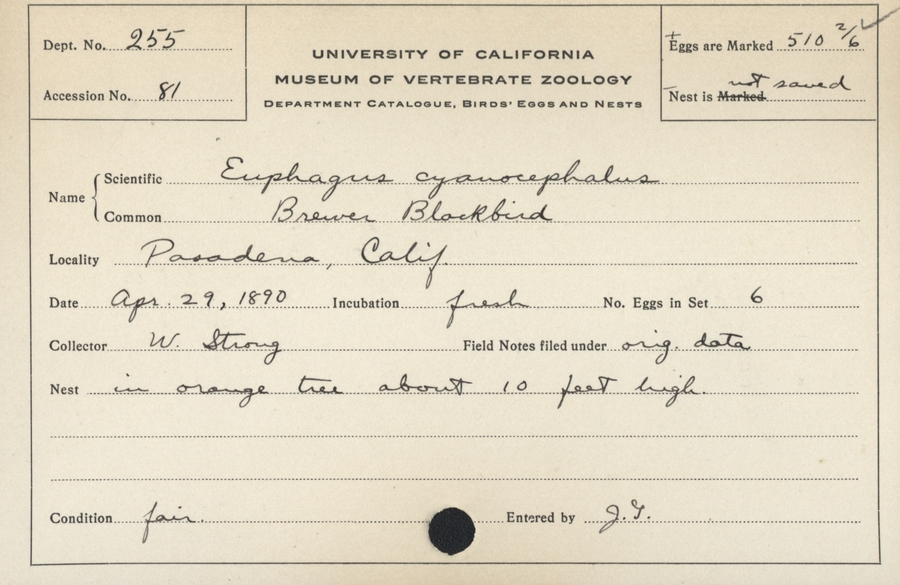 Dept. No. 255
Accession No. 81
UNIVERSITY OF CALIFORNIA
MUSEUM OF VERTEBRATE ZOOLOGY
DEPARTMENT CATALOGUE, BIRDS' EGGS AND NESTS
Eggs are Marked 510 2/6
Nest is Marked not saved
Name
Scientific Euphagus cyanocephalus
Common Brewer Blackbird
Locality Pasadena, Calif
Date Apr. 29, 1890 Incubation fresh No. Eggs in Set 6
Collector W. Strong Field Notes filed under orig. data
Nest in orange tree about 10 feet high.
Condition fair. Entered by J.G.